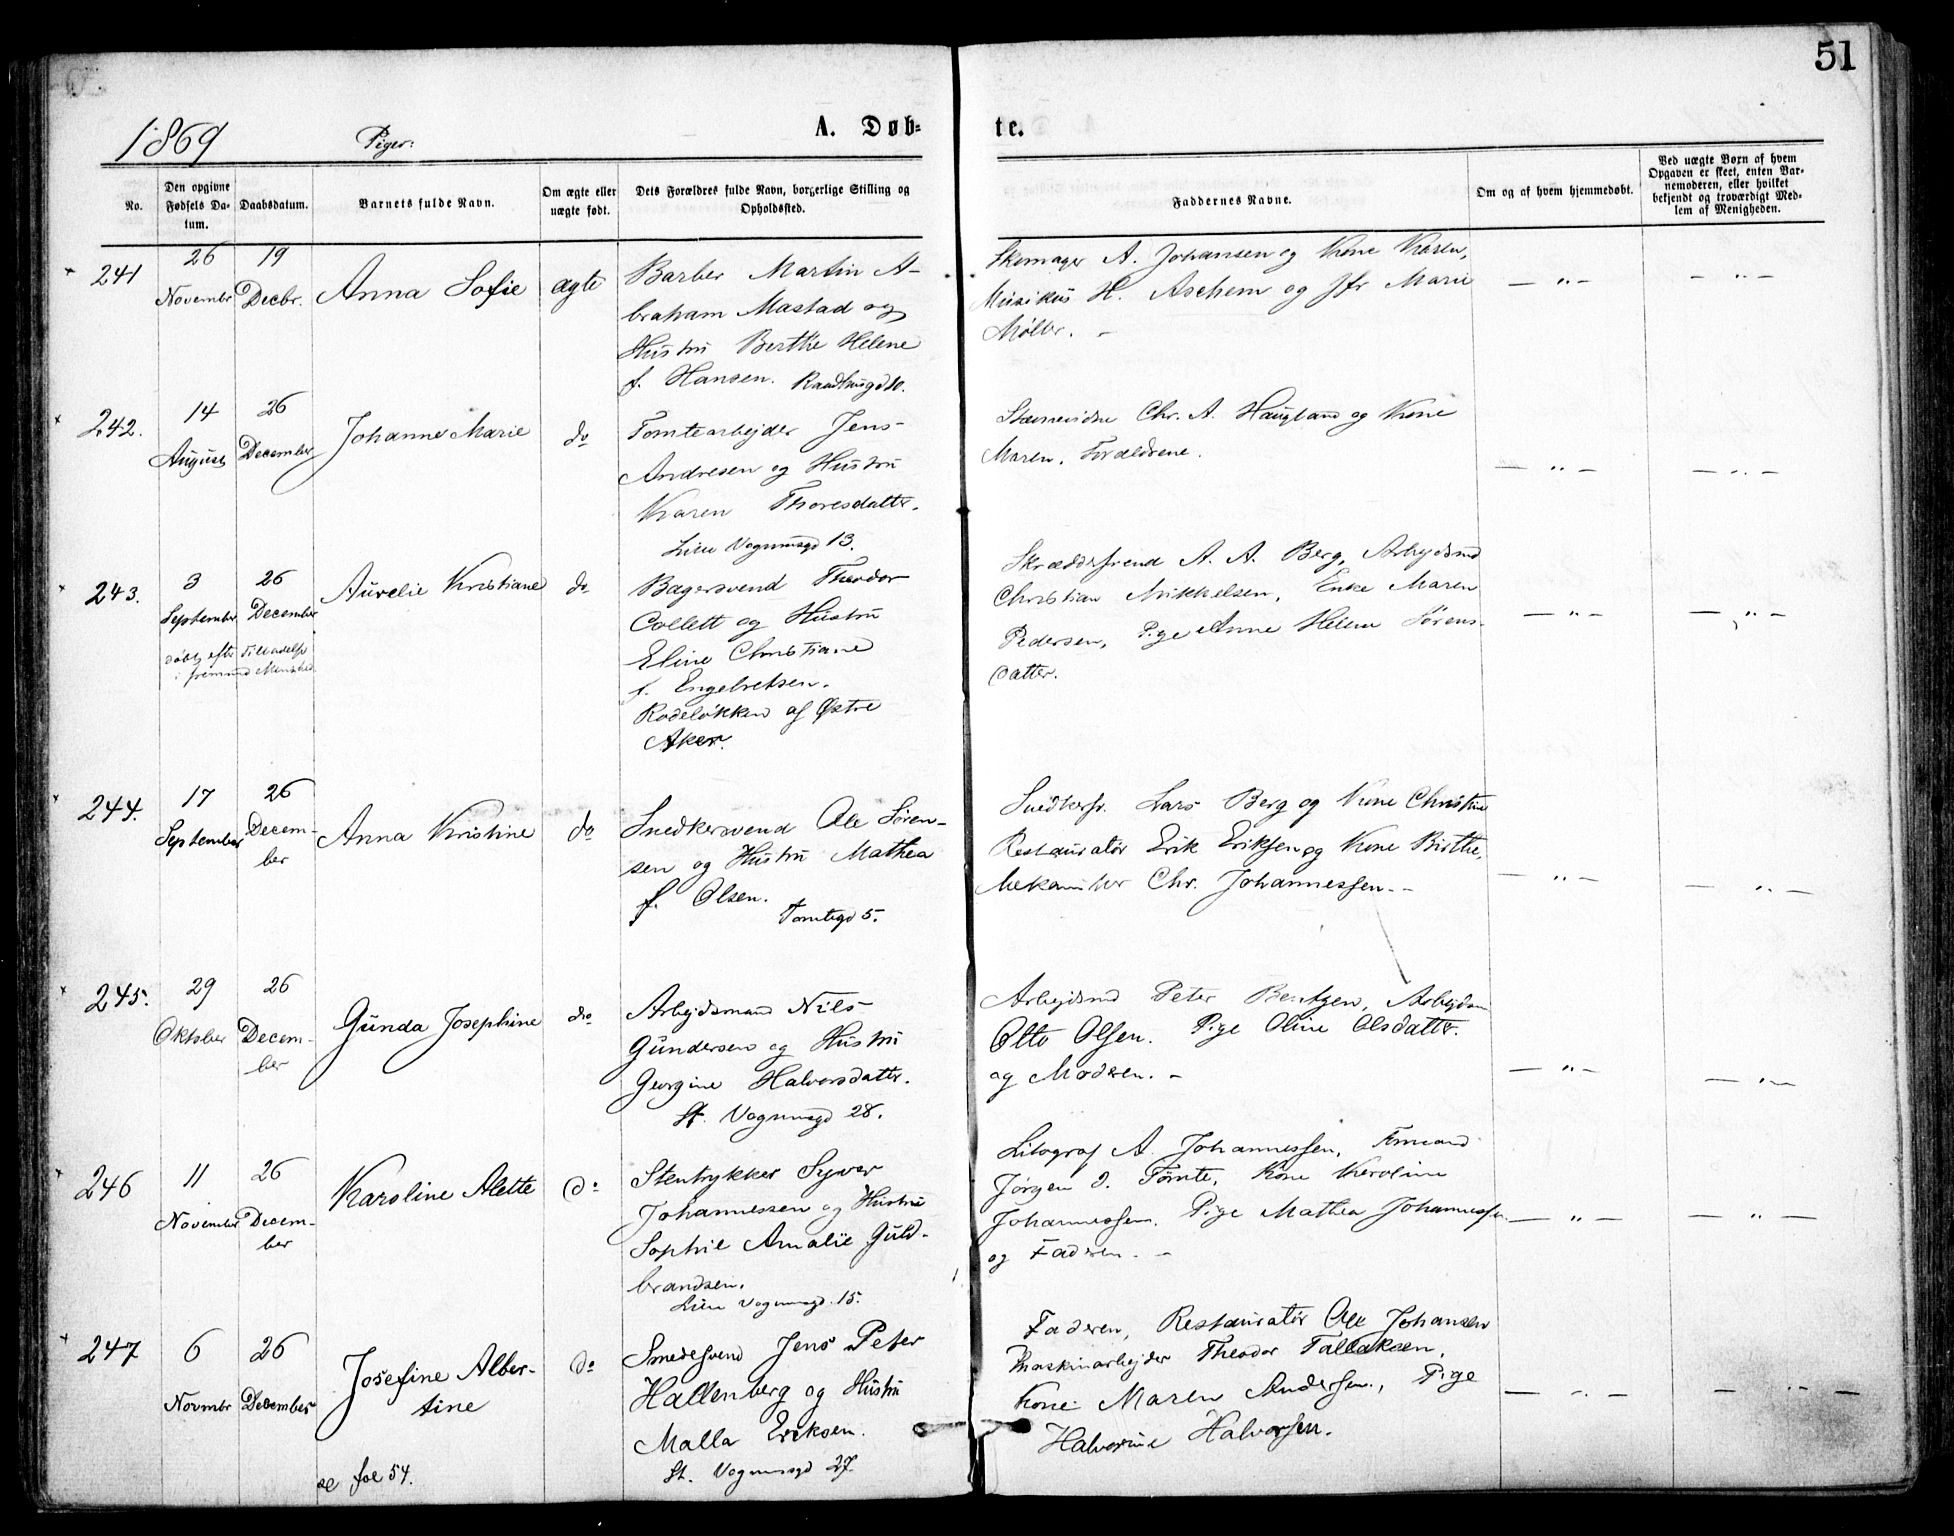 51
1869 Piger: A. Døb- te.
No.
Den opgivne
Fødsels Da-
tum.
Daabsdatum.
Barnets fulde Navn.
Om ægte eller
uægte født.
Dets Forældres fulde Navn, borgerlige Stilling og
Opholdssted.
Faddernes Navne.
Om og af hvem hjemmedøbt.
Ved uægte Børn af hvem
Opgaven er skeet, enten Bar-
nemoderen, eller hvilket
bekjendt og troværdigt Med-
lem af Menigheden.
241
26
Novembr
19
Decbr.
Anna Sofie
ægte
Barber Martin A-
braham Mastad og
Hustru Berthe Helene
f. Hansen.
Skomager A. Johansen og Kone Karen,
Musikus H. Aschem og Jfr Marie
— „ —
— „ —
242.
14
August
26
December
Johanne Marie
do
Tomtearbejder Jens
Andresen og Hustru
Karen Thoresdattr.
Lille Vognmsgd 13.
Chr. A. Haugland og Kone
Maren. Forældrene.
— „ —
— „ —
243.
3
September
26
December
døbt efter
i fremmed Menighed
Aurelie Kristiane
do
Bagersvend Theodor
Collett og Hustru
Eline Christiane
f. Engelretsen.
Rodeløkken af Østre
Aker.
A. A. Berg, Arbejdsmd
Christian Mikkelsen, Enke Maren
Pedersen, Pige Anne Helene Sørens-
datter.
— „ —
— „ —
244.
17
September
26
Decem-
ber
Anna Kristine
do
Snedkersvend Ole Søren-
sen og Hustru Mathea
f. Olsen.
Tomtegd 5.
Snedkersv. Lars Berg og Kone Christine
Restauratør Erik Eriksen og Kone Birthe,
Mekaniker Chr. Johannessen. -
— „ —
— „ —
245.
29
Oktober
26
Decem-
ber
Gunda Josephine
do
Arbejdsmand Nils
Gundersen og Hustru
Georgine Halvorsdattr.
St. Vognmsgd 28.
Arbejdsmd Peter Bentzen, Arbejdsm
Otto Olsen. Pige Oline Olsdattr.
og Moderen. -
— „ —
— „ —
246
11
November
26
Decem-
ber
Karoline Alette
do
Stentrykker Syver
Johannessen og Hustru
Sophie Amalie Guld-
brandsen.
Lille Vognmsgd. 15.
Litograf A. Johannessen,
Jørgen J. Tømte, Kone Karoline
Johannessen. Pige Mathea Johannessen
og Faderen. -
— „ —
— „ —
247
6
Novmbr
26
December
Josefine Alber-
tine
se fol 54.
do
Smedesvend Jens Peter
Hallenberg og Hustru
Malla Eriksen.
St. Vognmsgd 27.
Faderen, Restauratør Ole Johansen
Maskinarbejder Theodor Tallaksen,
Kone Maren Andersen, Pige
Halvorine Halvorsen.
— „ —
— „ —